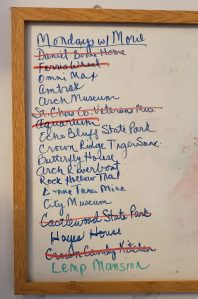 Monday w/ Move
Daniel Boone Home
Ferris Wheel
Omni Max
Amtrak
Arch Museum
St. Chas Co. Veterans Mus.
Aquarium
Echo Bluff State Park
Crown Ridge Tiger Sanc.
Butterfly House
Arch Riverfront
Rock Hollow Trail
Bonne Terre Mine
City Museum
Castlewood State Park
Hays House
Crown Candy Kitchen
Lemp Mansion